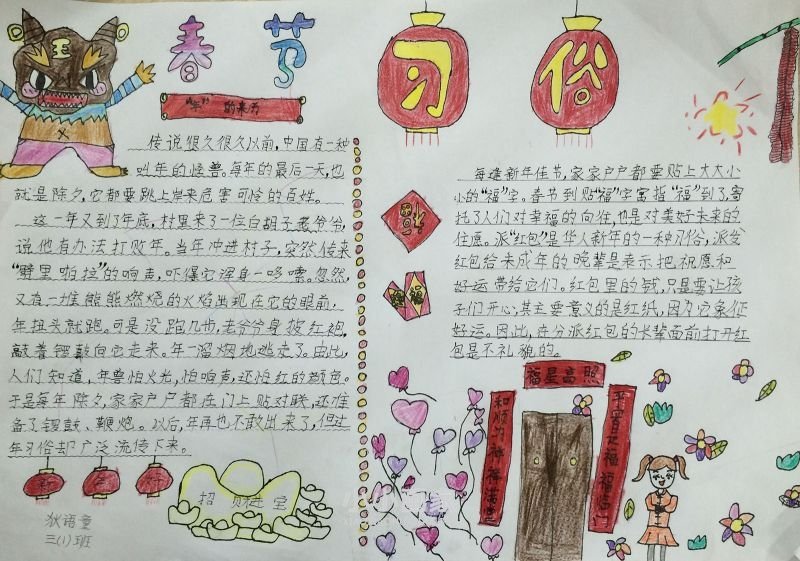 春节
习俗
"年"的来历
传说很久很久以前,中国有一种
叫年的怪兽。每年的最后一天,也
就是除夕,它都要跳上岸来危害可怜的百姓。
这一年又到了年底,村里来了一位白胡子老爷爷,
说他有办法打败年。当年冲进村子,突然传来
"劈里啪拉"的响声,吓得它浑身一哆嗦。忽然,
又有一堆熊熊燃烧的火焰出现在它的眼前,
年扭头就跑。可是没跑几步,老爷爷身披红袍,
敲着锣鼓向它走来。年一溜烟地逃走了。由此,
人们知道,年兽怕火光,怕响声,还怕红的颜色。
于是每年除夕,家家户户都在门上贴对联,还准
备了锣鼓、鞭炮。以后,年再也不敢出来了,但过
年习俗却广泛流传下来。
新
年
好
招财进宝
狄语童
三(1)班
每逢新年佳节,家家户户都要贴上大大小
小的"福"字。春节到贴"福"字寓指"福"到了,寄
托了人们对幸福的向往,也是对美好未来的
祝愿。派"红包"是华人新年的一种习俗,派发
红包给未成年的晚辈是表示把祝愿和
好运带给它们。红包里的钱,只是要让孩
子们开心,其主要意义的是红纸,因为它象征
好运。因此,在分派红包的长辈面前打开红
包是不礼貌的。
福
福
福星高照
和顺为祥祥满堂